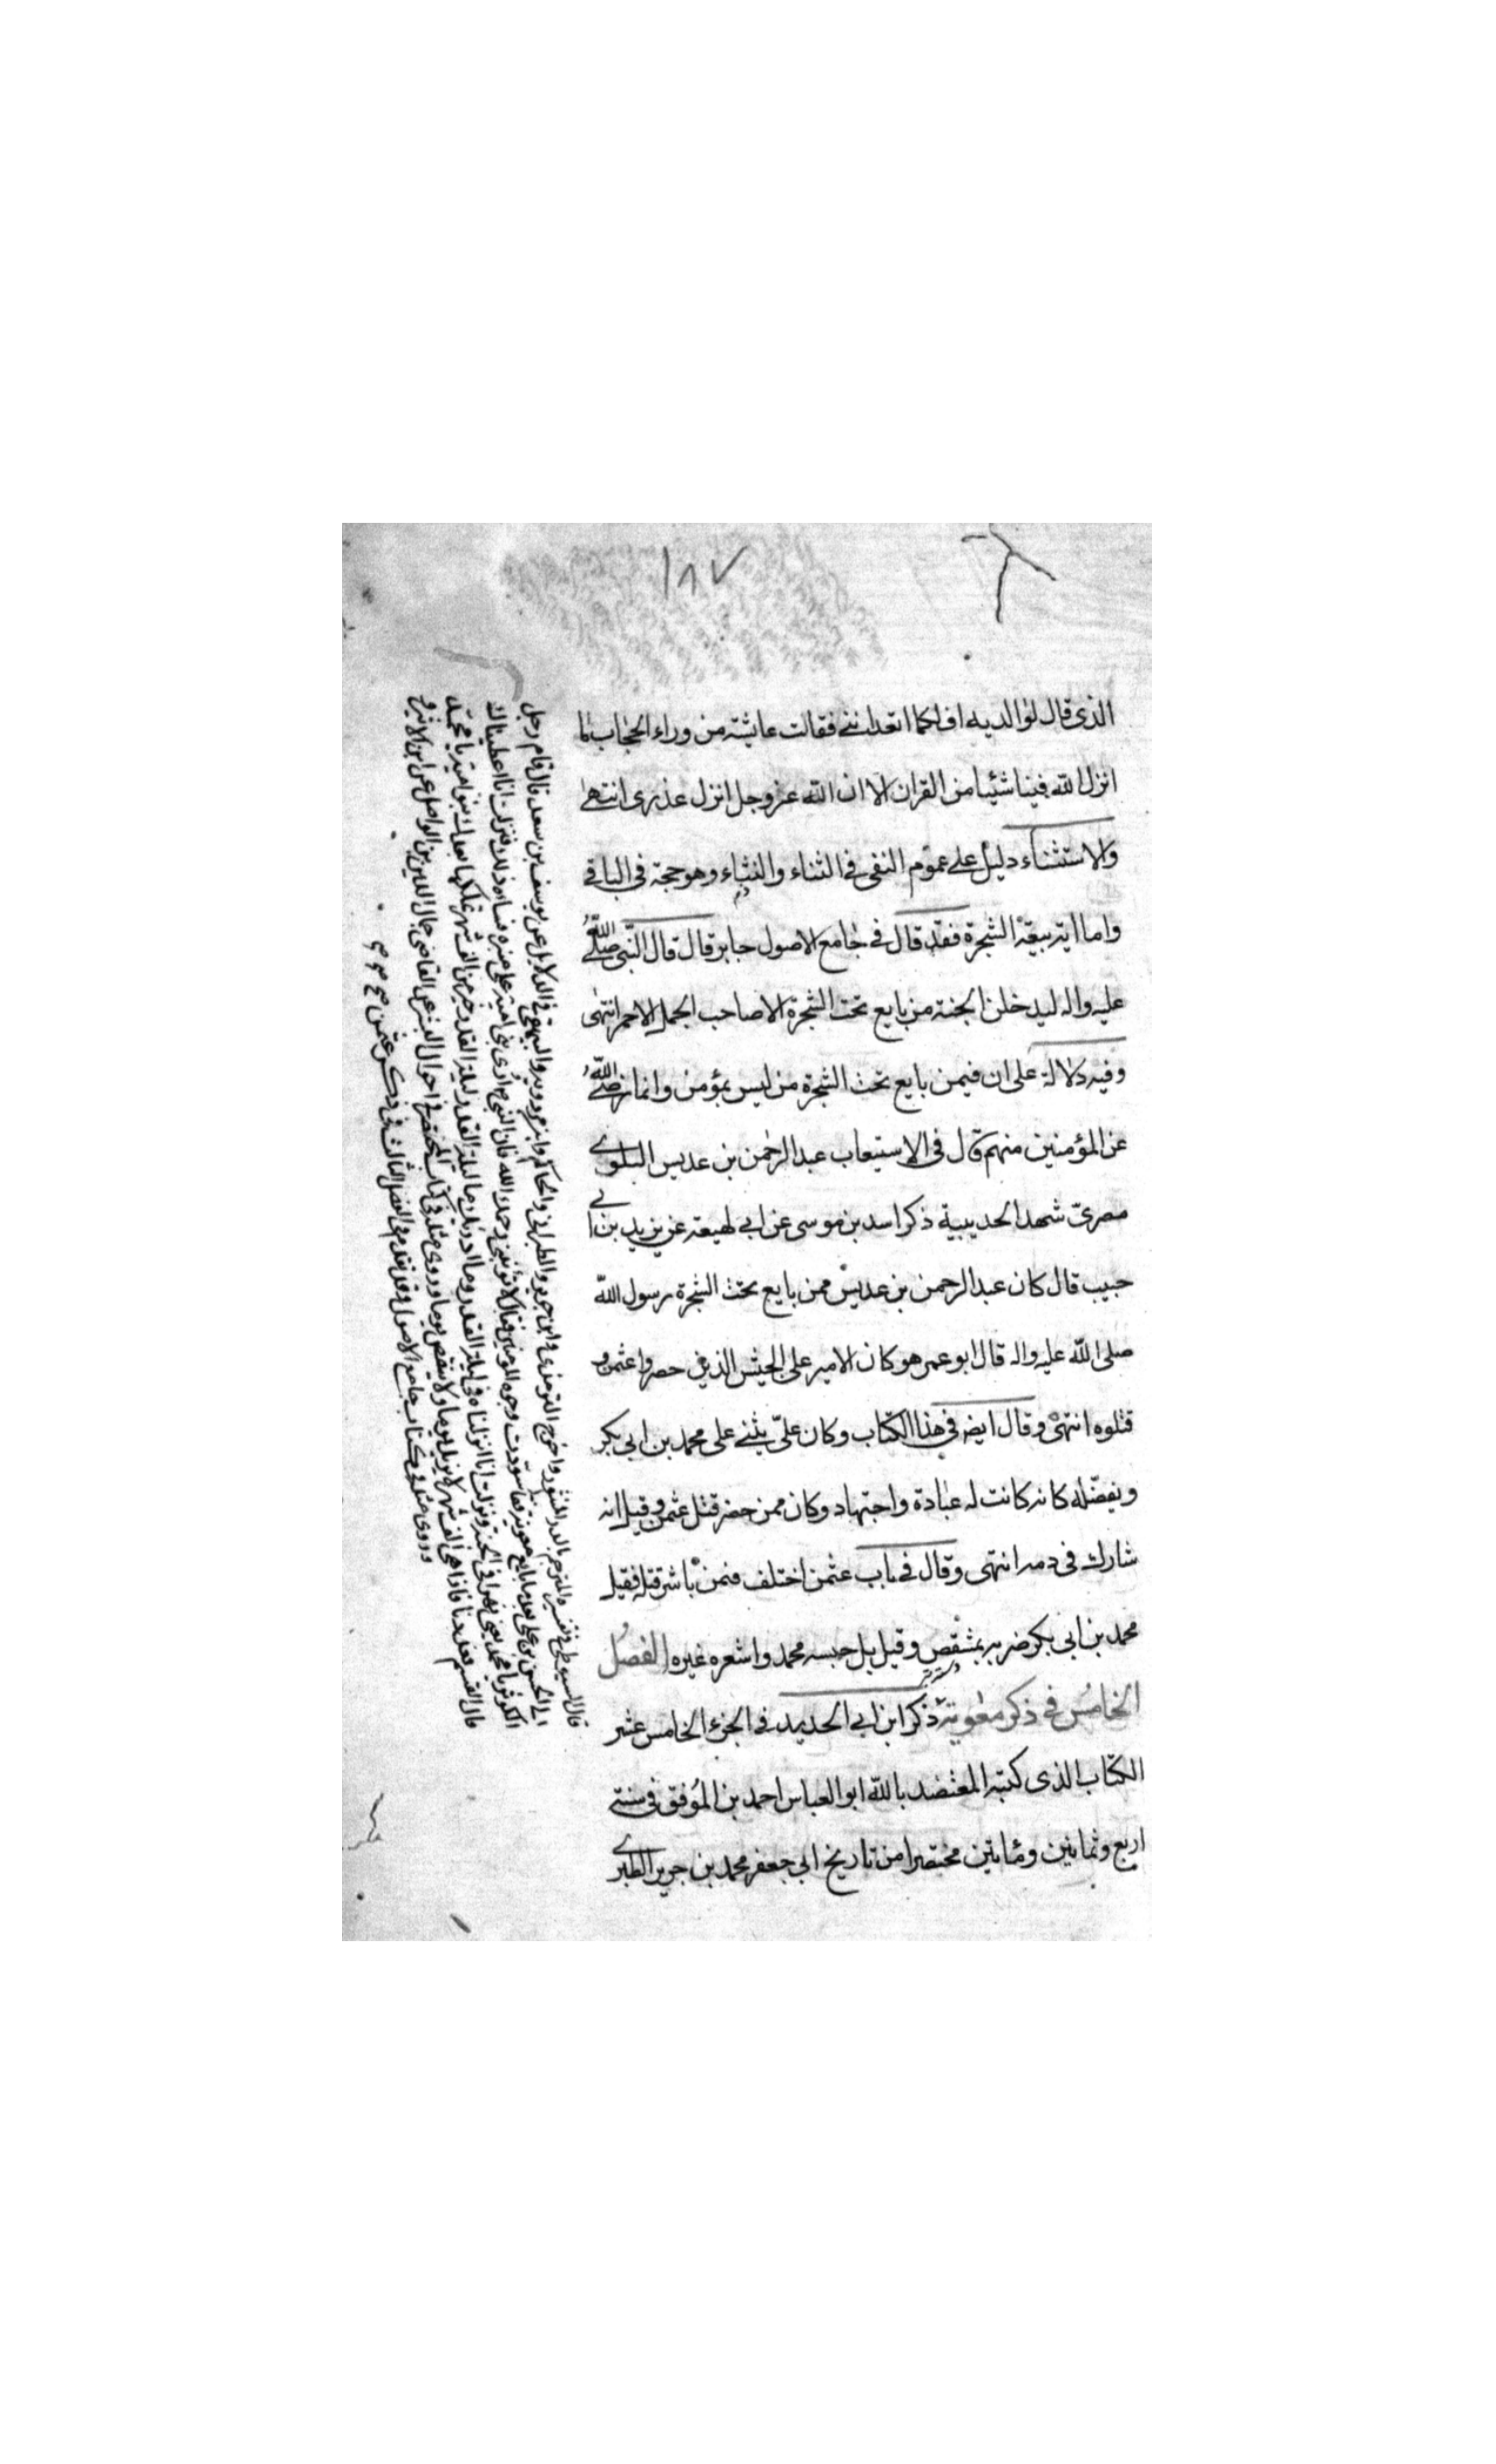 ١٨٧
الذى قال لوالديه اف لكما اتعداننى فقالت عايشة من وراء الحجاب ما
انزل الله فينا شيئا من القران الا ان الله عز وجل انزل عذرى انتهى
والاستثناء دليل على عموم النفى فى الثناء والنثاء وهو حجة فى الباقے
واما اية بيعة الشجرة فقد قال فى جامع الاصول جابر قال قال النبى صلى الله
عليه واله ليدخلن الجنة من بايع تحت الشجرة الا صاحب الجمل الاحمر انتهى
وفيه دلالة على ان فيمن بايع تحت الشجرة من ليس بمؤمن وانما رضى الله
عن المؤمنين منهم قال فى الاستيعاب عبد الرحمن بن عديس البلوے
مصرى شهد الحديبية ذكر اسد بن موسى عن ابى لهيعة عن يزيد بن ابے
حبيب قال كان عبد الرحمن بن عديس ممن بايع تحت الشجرة رسول الله
صلى الله عليه واله قال ابو عمر هو كان الامير على الجيش الذين حصروا عثمن و
قتلوه انتهى وقال ايضا فى هذا الكتاب وكان علىّ يثنے على محمد بن ابى بكر
ويفضّله كانه كانت له عبادة واجتهاد وكان ممن حضر قتل عثمن وقيل انه
شارك فى دمه انتهى وقال فى باب عثمن اختلف فيمن باشر قتله فقيل
محمد بن ابى بكر ضربه بمشقص وقيل بل حبسه محمد واشعره غيره الفصل
الخامس فى ذكر معوية ذكر ابن ابى الحديد فى الجزء الخامس عشر
الكتاب الذى كتبه المعتضد بالله ابو العباس احمد بن الموفق فى سنة
اربع وثمانين ومأتين مختصرا من تاريخ ابى جعفر محمد بن جرير الطبرے
قال السيوطى فى تفسيره المترجم بالدر المنثور واخرج الترمذى وابن جرير والطبرانى والحاكم وابن مردويه والبيهقى فى الدلايل عن يوسف بن سعد قال قام رجل
الى الحسن بن على بعد ما بايع معوية فقال سودت وجوه المؤمنين فقال لا تؤنبنى رحمك الله فان النبى ص أرى بنى امية على منبره فساءه ذلك فنزلت انا اعطيناك
الكوثر يا محمد يعنى نهرا فى الجنة ونزلت انا انزلناه فى ليلة القدر وما ادريك ما ليلة القدر ليلة القدر خير من الف شهر تملكها بعدك بنو امية يا محمد
قال القسم فعددنا فاذا هى الف شهر لا يزيد يوما ولا ينقص يوما
وروى مثله فى كتاب جامع الاصول وقد تقدم فى الفصل الثالث فى ذكر عثمن